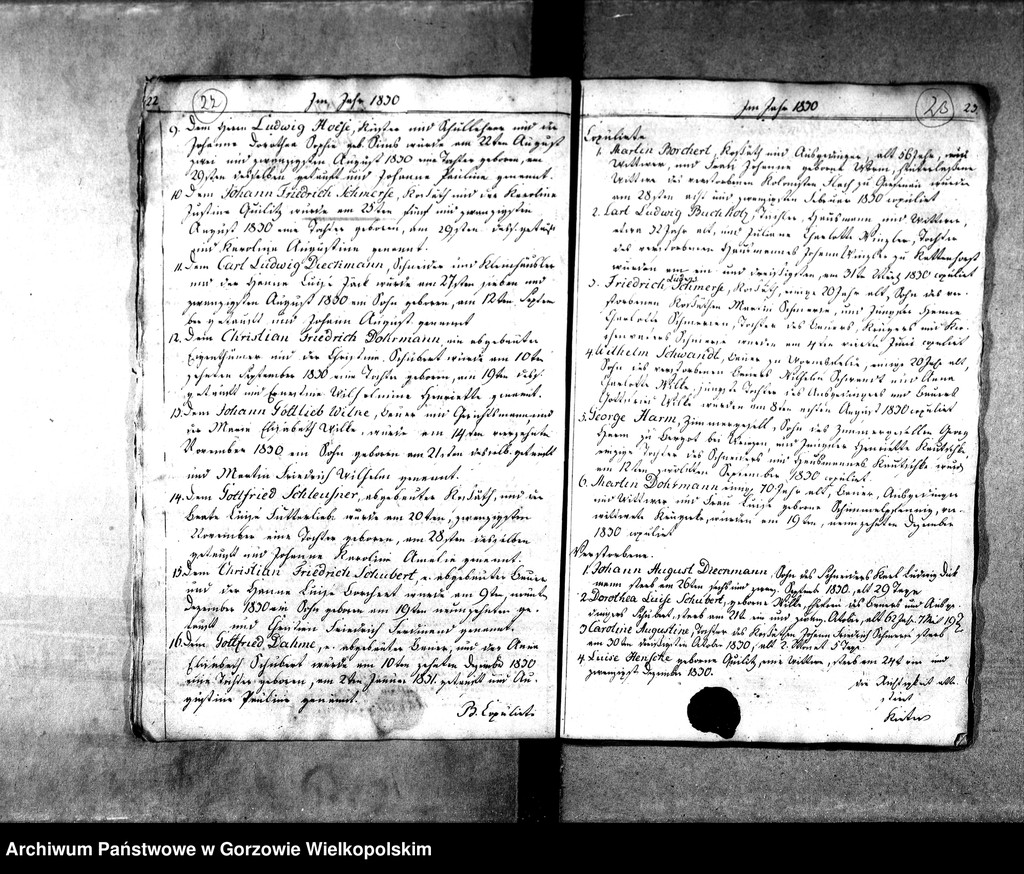 22
22
Im Jahr 1830
9. Dem Herrn Ludwig Hoese, Küster und Schullehrer und der
Johanne Dorothee Sophie geb. wurde am 22ten August
zwei und zwanzigsten August 1830 eine Tochter geboren, am
29sten desselben getauft und Johanne Pauline genannt.
10. Dem Johann Friedrich Schmerse, Kossäth und der Karoline
Justine Quilitz wurde am 25ten fünf und zwanzigsten
August 1830 eine Tochter geboren, am 29sten dess. getauft
und Karoline Augustine genannt.
11. Dem Carl Ludwig Dieckmann, Schneider und
und der Hanne Luise wurde am 27sten sieben und
zwanzigsten August 1830 ein Sohn geboren, am 12ten Septem
ber getauft und Johann August genannt
12. Dem Christian Friedrich Dohrmann, ein abgebauter
Eigenthümer und der Christine Schubert wurde am 10ten
zehnten September 1830 eine Tochter geboren, am 19ten dess.
getauft und Ernestine Wilhelmine Henriette genannt.
13. Dem Johann Gottlieb Wilke, Bauer und Gerichtsmann, und
der Marie Elisabeth Wilke wurde am 14ten vierzehnten
November 1830 ein Sohn geboren am 21sten desselb. getauft
und Martin Friedrich Wilhelm genannt.
14. Dem Gottfried Schleusner, abgebauter Kossäth, und der
Beate Luise Futterlieb wurde am 20ten, zwanzigsten
November eine Tochter geboren, am 28sten desselben
getauft und Johanne Karoline Amalie genannt.
15. Dem Christian Friedrich Schubert, e. abgebauter Bauer
und der Hanne Luise Borchert wurde am 9ten, neunten
Dezember 1830 ein Sohn geboren am 19ten neunzehnten ge-
tauft und Christian Friedrich Ferdinand genannt.
16. Dem Gottfried Dahme, e. abgebauter Bauer, und der Anne
Elisabeth Schubert wurde am 10ten zehnten Dezember 1830
eine Tochter geboren, am 2ten Januar 1831 getauft und Au-
gustine Pauline genannt.
B. Copulirte
Im Jahr 1830
23
23
Copulirte
1. Martin Borchert, Kossäth und Ausgedinger, alt 56 Jahr,
Wittwer, und Frau Johanne geborne hinterlassene
Wittwe des verstorbenen Kolonisten zu wurden
am 28sten acht und zwanzigsten Februar 1830 copulirt
2. Carl Ludwig Buchholz, Hausmann und Wittwer,
etwa 32 Jahr alt, und Juliane Charlotte Winzler, Tochter
des verstorbenen Hausmannes Johann Winzler zu
wurden am ein und dreißigsten, am 31ten März 1830 copulirt
3. Friedrich Ludwig Schmerse, Kossäth, 20 Jahr alt, Sohn des ver-
storbenen Kossäthen Martin Schmerse, und Jungfer Hanne
Charlotte Tochter des Bauers, und
Schmerse wurden am 4ten vierten Juni copulirt
4. Wilhelm Schwandt, Bauer zu 20 Jahr alt,
Sohn des verstorbenen Bauers Wilhelm Schwandt und Anne
Charlotte Wilke, jüngste Tochter des Ausgedingers und Bauers
Wilke, wurden am 8ten achten August 1830 copulirt
5. George Harm, Zimmergesell, Sohn des Zimmergesellen Georg
Harm zu bei und Jungfer Henriette
einzige Tochter des Schneiders und Hausmannes wurden
am 12ten zwölften September 1830 copulirt.
6. Martin Dohrmann 70 Jahr alt, Bauer, Ausgedinger
und Wittwer und Frau Luise geborne Schimmelpfennig, ver-
wittwete wurden am 19ten, neunzehnten Dezember
1830 copulirt
Verstorbene.
1. Johann August Dieckmann, Sohn des Schneiders Karl Ludwig Dieck
mann starb am 26ten sechs und zwanz. Septemb. 1830, alt 29 Tage
2. Dorothea Luise Schubert, geborne Wilke, Ehefrau des Bauers und Ausge-
dingers Schubert, starb am 21st ein und zwanz. October, alt 62 Jahr 7 Mon 19 T.
3. Caroline Augustine, Tochter des Kossäthen Johann Friedrich Schmerse starb
am 30ten dreißigsten October 1830, alt 2 Monat 5 Tage
4. Luise Henscke geborne Quilitz, eine Wittwe, starb am 24st vier und
zwanzigst Dezember 1830.
Die Richtigkeit atte-
stirt
Archiwum Państwowe w Gorzowie Wielkopolskim